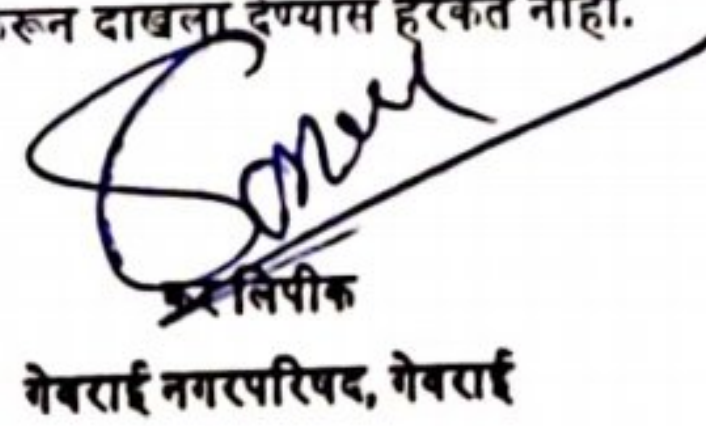 करून दाखला देण्यास हरकत नाही.
कर लिपीक
गेवराई नगरपरिषद, गेवराई